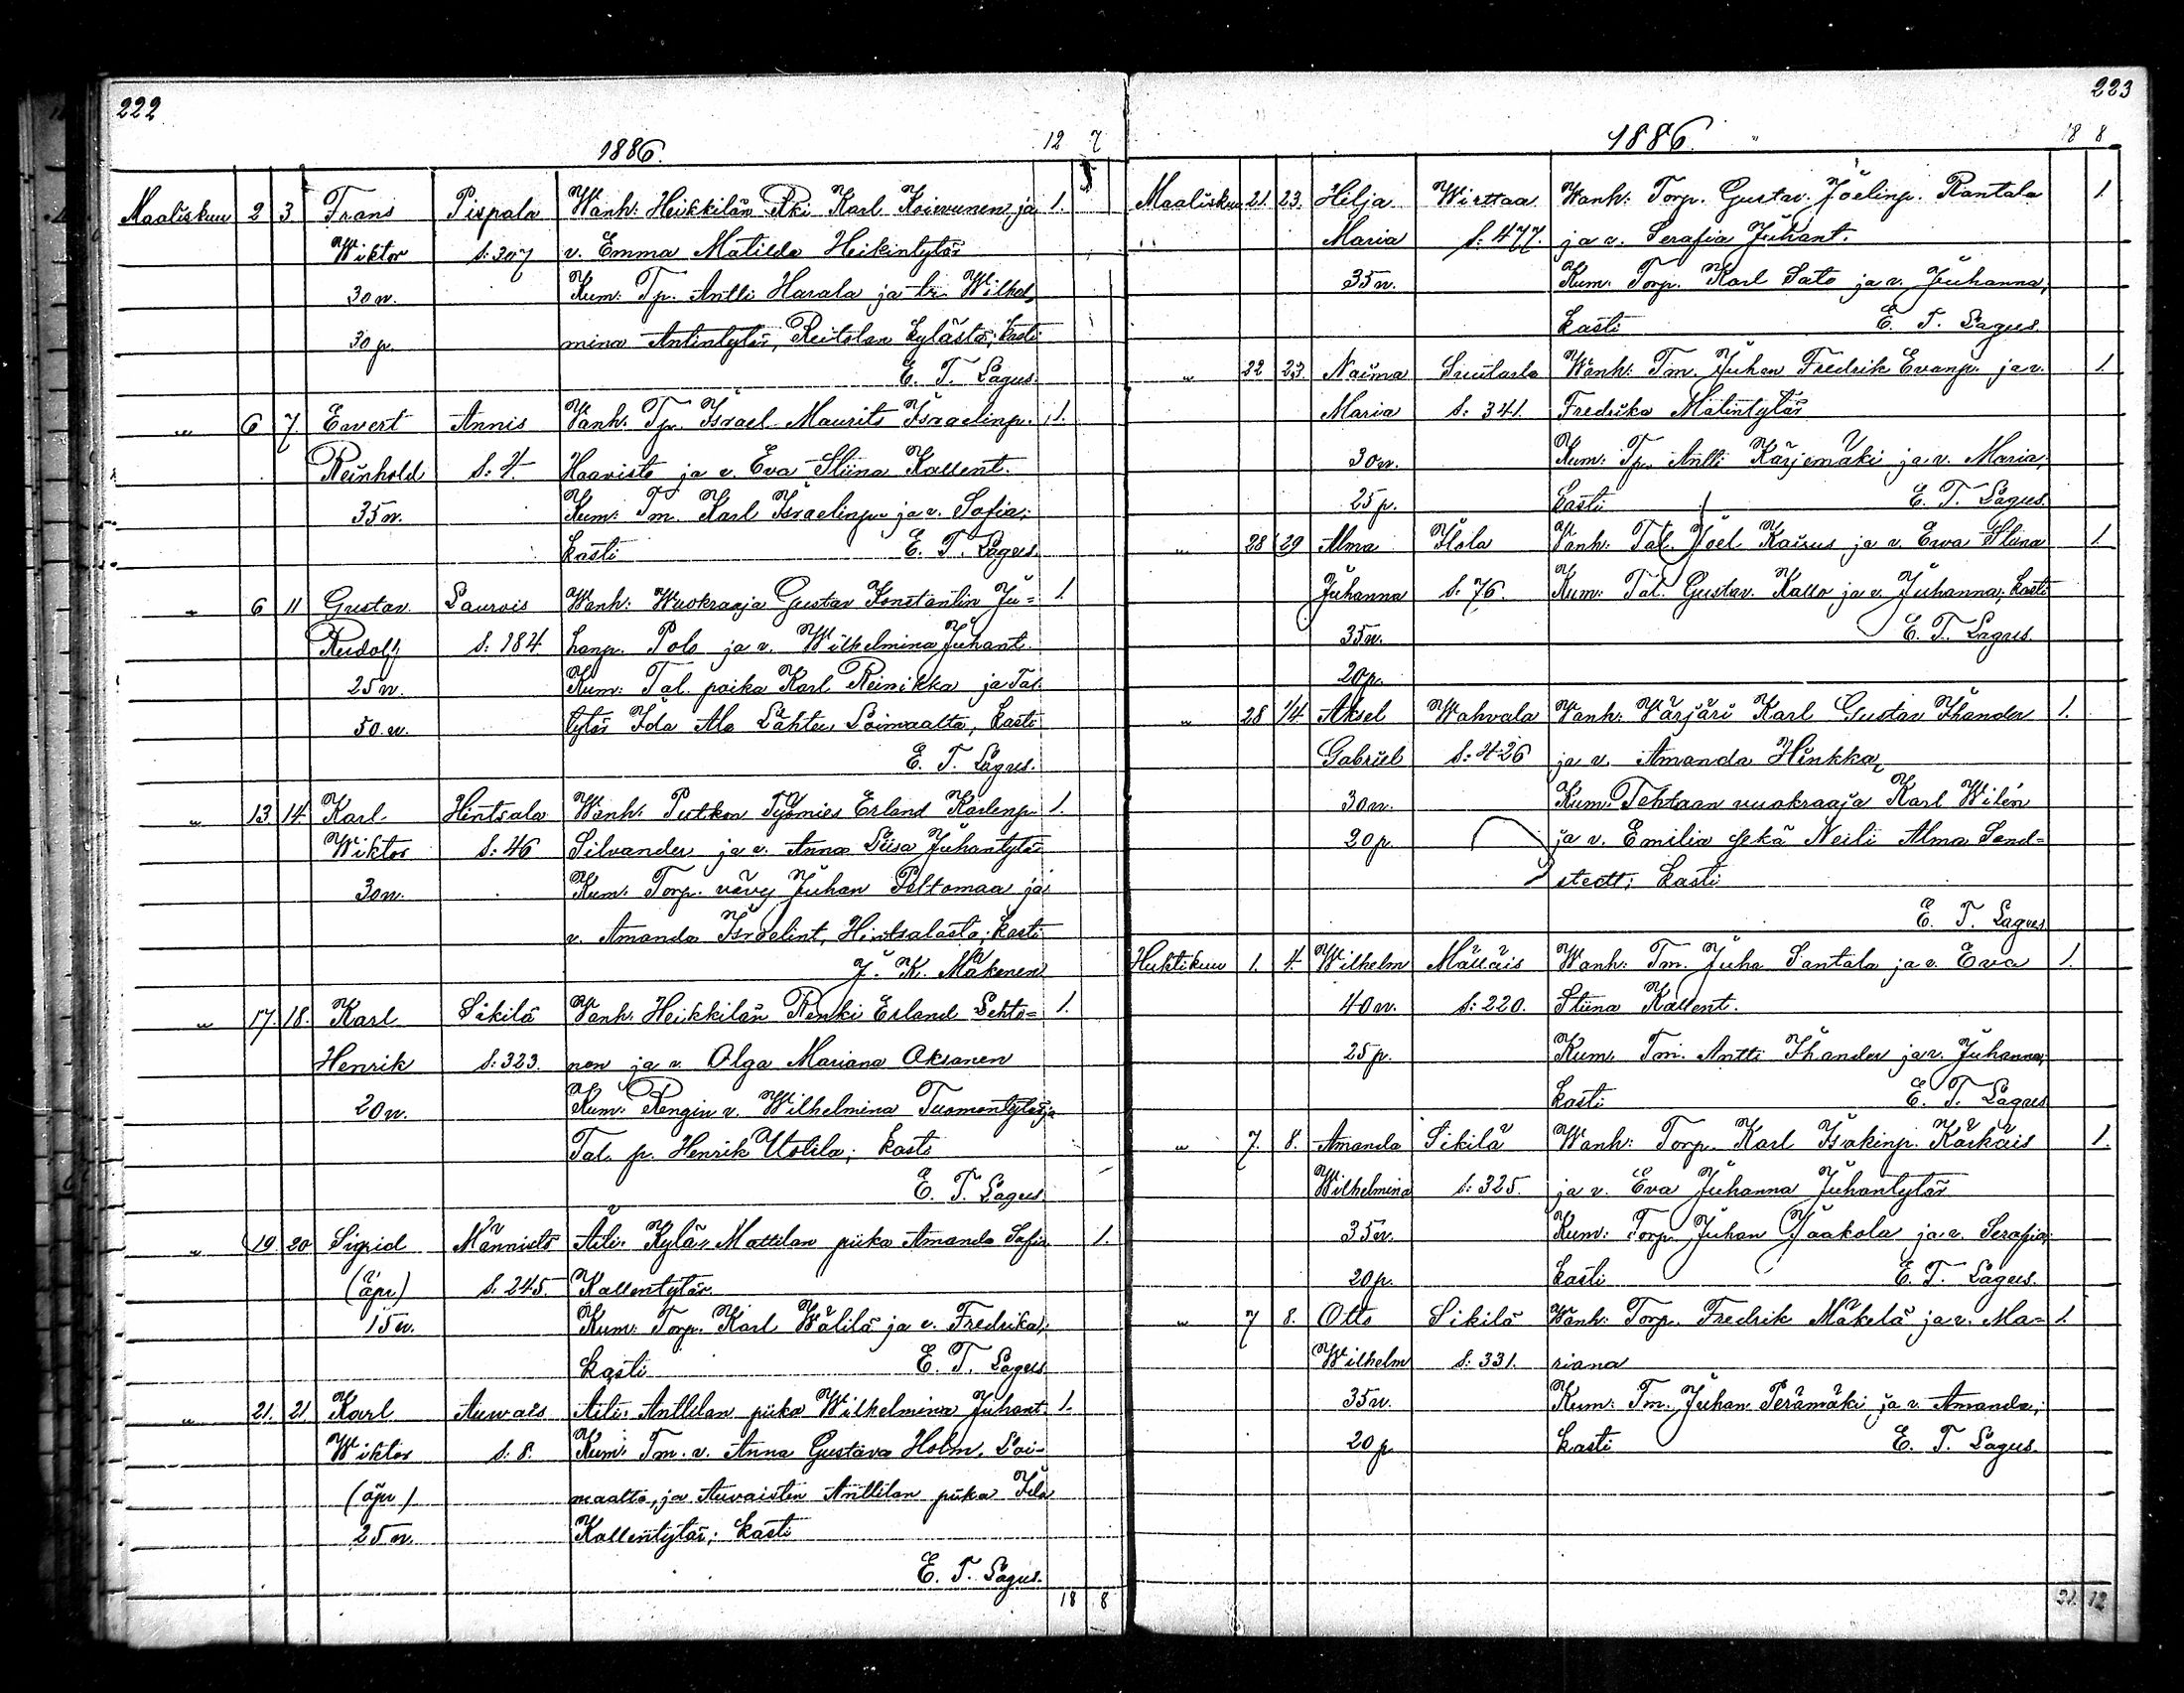 222
1886.
12 7
Maaliskuu 2 3 Frans Pispala Wanh: Heikkilän Rki Karl Koivunen ja 1.
Wiktor S: 307 v. Emma Matilda Heikintytär
30 v. Kum: Tp. Antti Harala ja Wilhel-
30 p. mina Antintytär, Reitolan kylästä; kasti
E. T. Lagus.
" 6 7 Evert Annis Vanh: Tp. Israel Maurits Israelinp. 1.
Reinhold S: 4. Haavisto ja v. Eva Stiina Kallent.
35 v. Kum: Tm. Karl Israelinp. ja v. Sofia;
kasti E. T. Lagus
" 6 11 Gustav Laurois Wanh: Wuokraaja Gustav Konstantin Ju= 1.
Rudolf S: 184 hanp. Polo ja v. Wilhelmina Juhant.
25 v. Kum: Tal. poika Karl Reinikka ja Tal.
50. v. tytär Ida Ala Lähteu Loimaalta, kasti
E. T. Lagus.
" 13 14 Karl Hintsala Wanh: Putkon Työmies Erland Karlenp. 1.
Wiktor S: 46 Silvander ja v. Anna Liisa Juhantytär
30 v. Kum: Torp. vävy Juhan Peltomaa ja
v. Amanda Israelint, Hintsalasta; kasti
J. K. Mäkenen
" 17. 18. Karl Sikilä Vanh: Heikkilän Renki Erland Lehto= 1.
Henrik S: 323. nen ja v. Olga Mariana Oksanen
20 v. Kum: Rengin v. Wilhelmina Tuomentytär ja
Tal. p. Henrik Uotila; kasti
E. T. Lagus
" 19. 20 Sigrid Männistö Äiti: Kylä-Mattilan piika Amanda Sofia 1.
(äpr) S. 245. Kallentytär
15 v. Kum: Torp. Karl Wälilä ja v. Fredrika;
kasti E. T. Lagus
" 21. 21 Karl Auvais Äiti: Anttilan piika Wilhelmina Juhant. 1.
Wiktor S: 8. Kum: Tm. v. Anna Gustava Holm, Loi-
(äpr) maalta, ja Auvaisten Anttilan piika Ida
25 v. Kallentytär; kasti
E. T. Lagus.
18 8
223
1886.
18 8
Maaliskuu 21. 23. Hilja Wirttaa Wanh: Torp. Gustav Joelinp. Rantala 1
Maria S: 477. ja v. Serafia Juhant.
35 v. Kum: Torp. Karl Sato ja v. Juhanna;
kasti E. T. Lagus.
" 22 23. Naima Suutarla Wanh: Tm. Juhan Fredrik Evanp. ja v. 1
Maria S: 341. Fredrika Matintytär
30 v. Kum: Tp. Antti Karjemäki ja v. Maria;
25 p. kasti E. T. Lagus
" 28 29 Alma Ilola Vanh: Tal. Joel Kairus ja v. Ewa Stiina 1.
Juhanna S: 76. Kum: Tal. Gustav Kallo ja v. Juhanna; kasti
35 v. E. T. Lagus.
20 p.
" 28 1/4 Aksel Wahvala Vanh: Värjäri Karl Gustav Ihander 1.
Gabriel S: 426 ja v. Amanda Hinkka,
30 v. Kum: Tehtaan vuokraaja Karl Wilén
20 p. ja v. Emilia sekä Neiti Alma Send=
stedt; kasti
E. T. Lagus
Huhtikuu 1. 4. Wilhelm Mälläis Wanh: Tm. Juha Santala ja v. Eva 1.
40 v. S: 220. Stiina Kallent.
25 p. Kum. Tm. Antti Ihander ja v. Juhanna;
kasti E. T. Lagus
" 7. 8. Amanda Sikilä Wanh: Torp. Karl Isakinp. Karkäis 1.
Wilhelmina S: 325. ja v. Eva Juhanna Juhantytär
35 v. Kum: Torp. Juhan Jaakola ja v. Serafia;
20 p. kasti E. T. Lagus.
" 7 8. Otto Sikilä Wanh: Torp. Fredrik Mäkelä ja v. Ma= 1.
Wilhelm S: 331. riana
35 v. Kum: Tm. Juhan Perämäki ja v. Amanda;
20 p kasti E. T. Lagus
21. 12